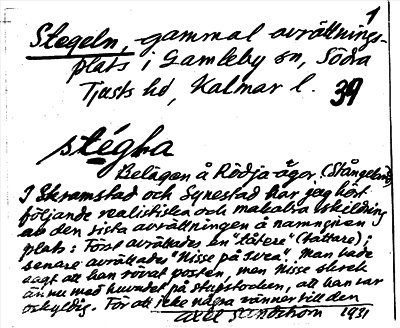 1
Stegeln, gammal avrättnings-
plats i Gamleby sn, Södra
Tjusts hd, Kalmar l. 39
stégɫa
Belägen å Rödja ägor. (Stångeland)
I Skramstad och Synestad har jag hört
följande realistiska och makabra skildring
av den sista avrättningen å namngiven
plats: Först avrättades en "tåtere" (tattare);
senare avrättades "Nisse på Svea". Man hade
sagt att han rövat posten, men Nisse skrek
ännu med huvudet på stupstocken, att han var
oskyldig. För att icke några vänner till den
Axel 1931